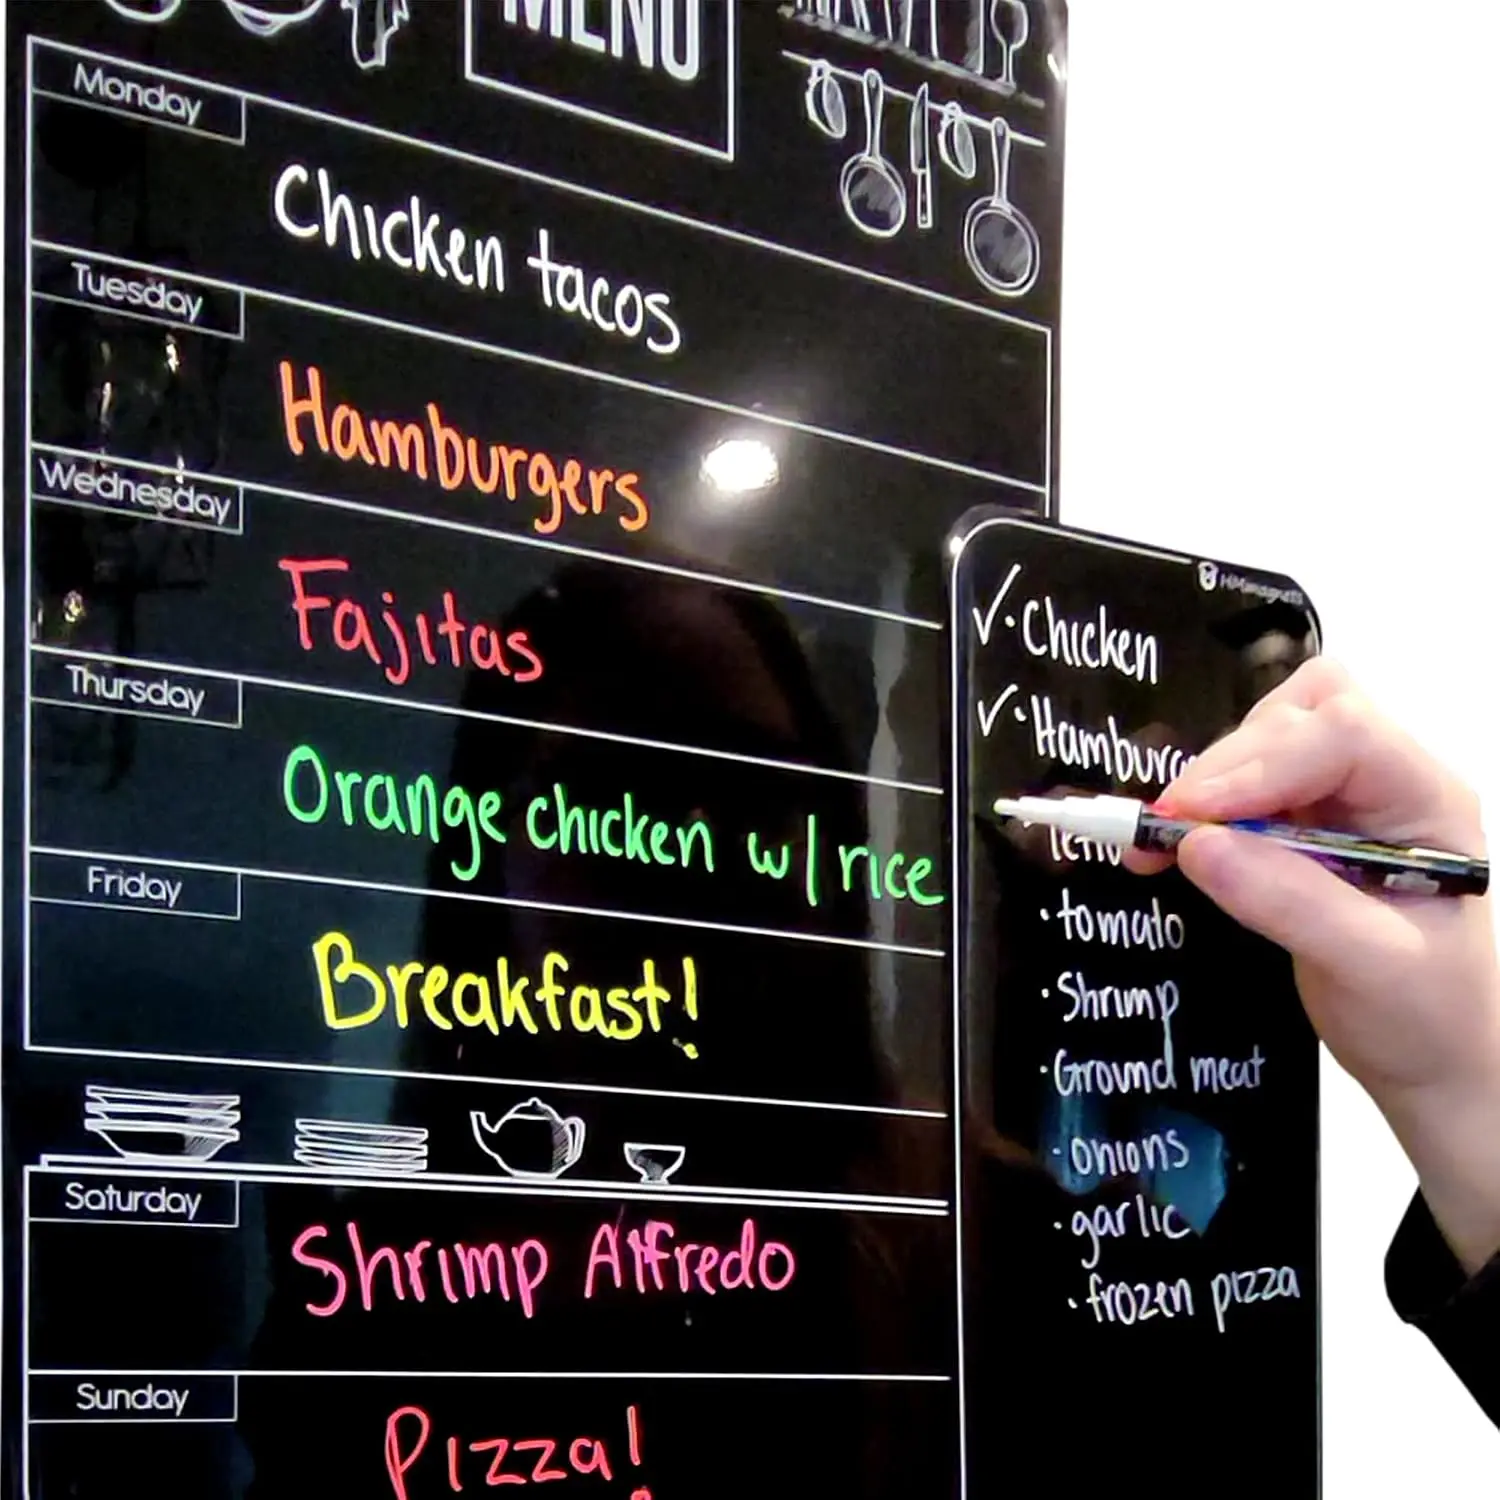 MENU
Monday
Chicken tacos
Tuesday
Hamburgers
Wednesday
Fajitas
Thursday
Orange chicken w/ rice
Friday
Breakfast!
Saturday
Shrimp Alfredo
Sunday
Pizza!
✓ · Chicken
✓ · Hamburge
· tomato
· Shrimp
· Ground meat
· onions
· garlic
· frozen pizza